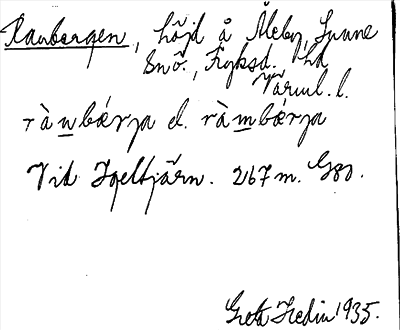 Ranbergen, höjd å Åleby, Sunne
Snö., Fryksd. hd
Värml. l.
rànbǽrja el. ràmbǽrja
Vid Igeltjärn. 267 m. Gso.
Greta Hedin 1935.